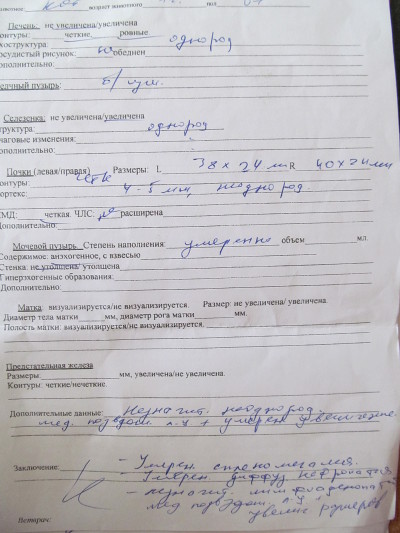 Печень: не увеличена/увеличена
онтуры: четкие, ровные
хоструктура: однород
осудистый рисунок: не обеднен
ополнительно:
елчный пузырь: б/изм.
Селезенка: не увеличена/увеличена
труктура: однород
чаговые изменения:
ополнительно:
Почки (левая/правая) Размеры: L 38 x 24 мм R 40x24 мм
онтуры: четк
ортекс: 4-5 мм, неоднород.
МД: четкая. ЧЛС: не расширена
Дополнительно:
Мочевой пузырь Степень наполнения: умеренно объем мл.
Содержимое: анэхогенное, с взвесью
Стенка: не утолщена/утолщена
Гиперэхогенные образования:
Дополнительно:
Матка: визуализируется/не визуализируется. Размер: не увеличена/ увеличена
Диаметр тела матки мм, диаметр рога матки мм.
Полость матки: визуализируется/не визуализируется.
Предстательная железа
Размеры: мм, увеличена/не увеличена.
Контуры: четкие/нечеткие.
Дополнительные данные: Незначит. неоднород.
мед. подвздош. л.у + умерен увеличение
Заключение: - Умерен. спленомегалия.
- Умерен диффуз нефропатия
- незначит. лимфоаденопат
мед подвздош. л.у
увелич размеров
Ветврач: